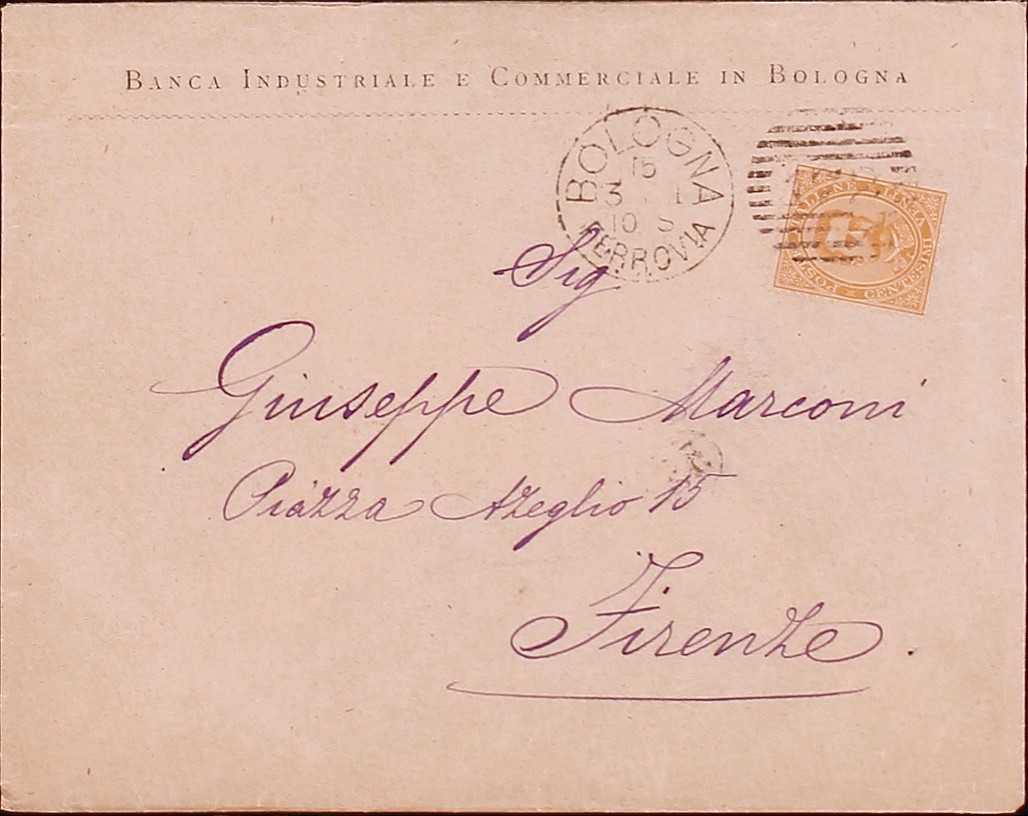 BANCA INDUSTRIALE E COMMERCIALE IN BOLOGNA
BOLOGNA
15
3
10 S
FERROVIA
POSTE ITALIANE
VENTI
CENTESIMI
Sig.
Giuseppe Marconi
Piazza Azeglio 15
Firenze.